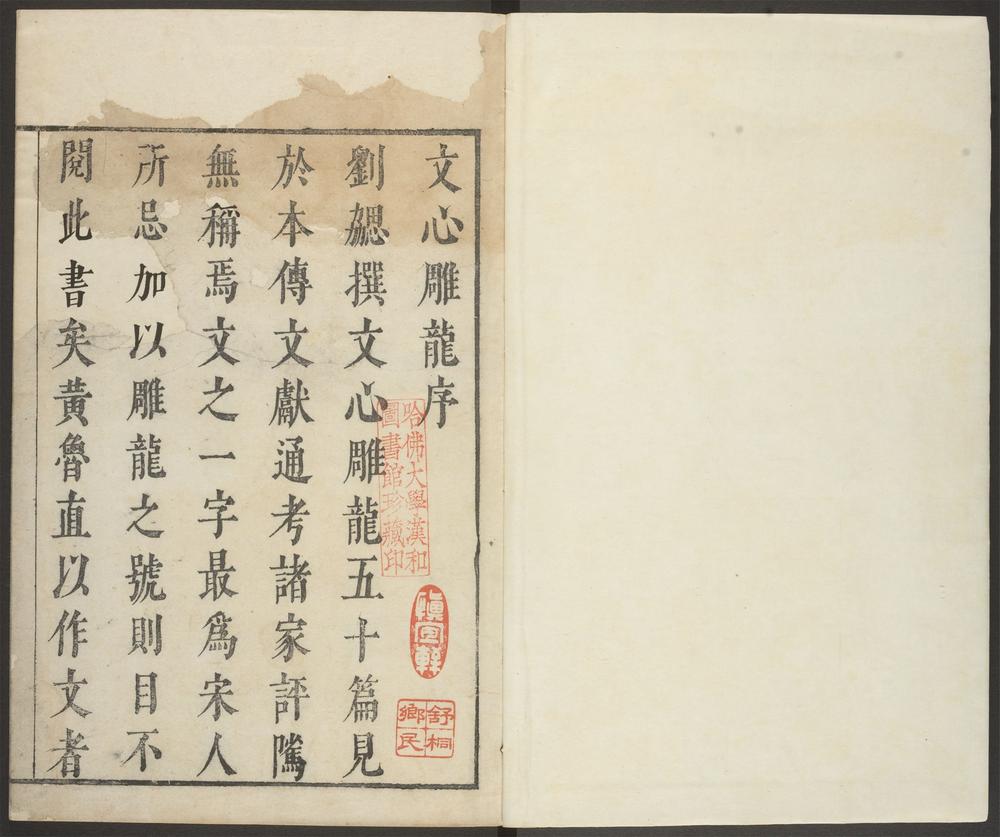 文心雕龍序
劉勰撰文心雕龍五十篇見
於本傳文獻通考諸家評隲
無稱焉文之一字最爲宋人
所忌加以雕龍之號則目不
閱此書矣黃魯直以作文者
哈佛大學漢和
圖書館珍藏印
軒
舒桐
鄉民